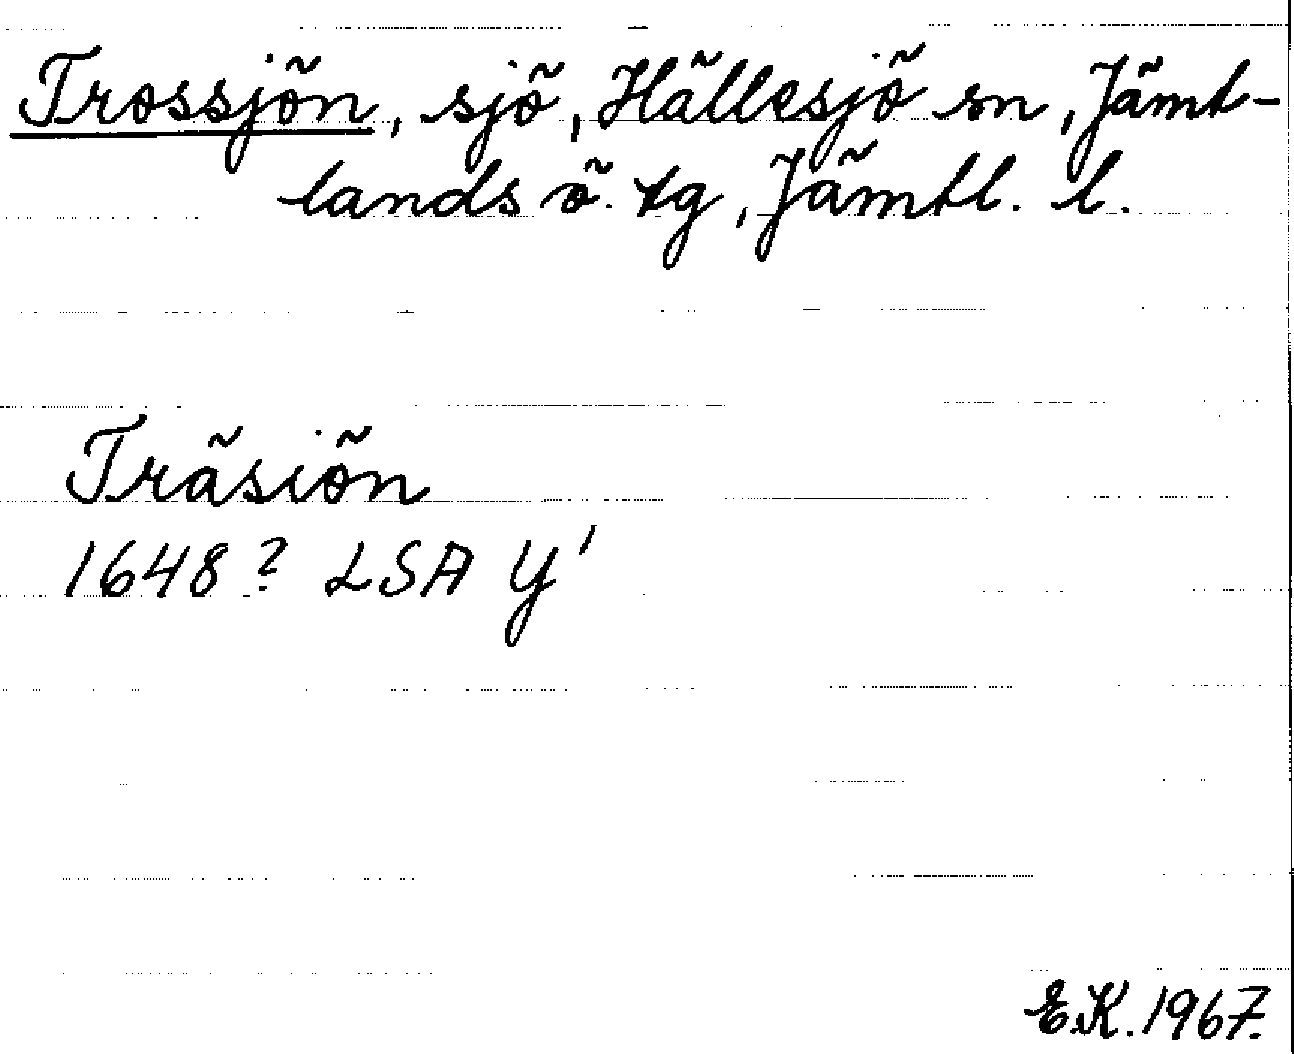 Trossjön, sjö, Hällesjö sn, Jämt-
lands ö. tg, Jämtl. l.
Träsiön
1648? LSA Y'
E.K. 1967.